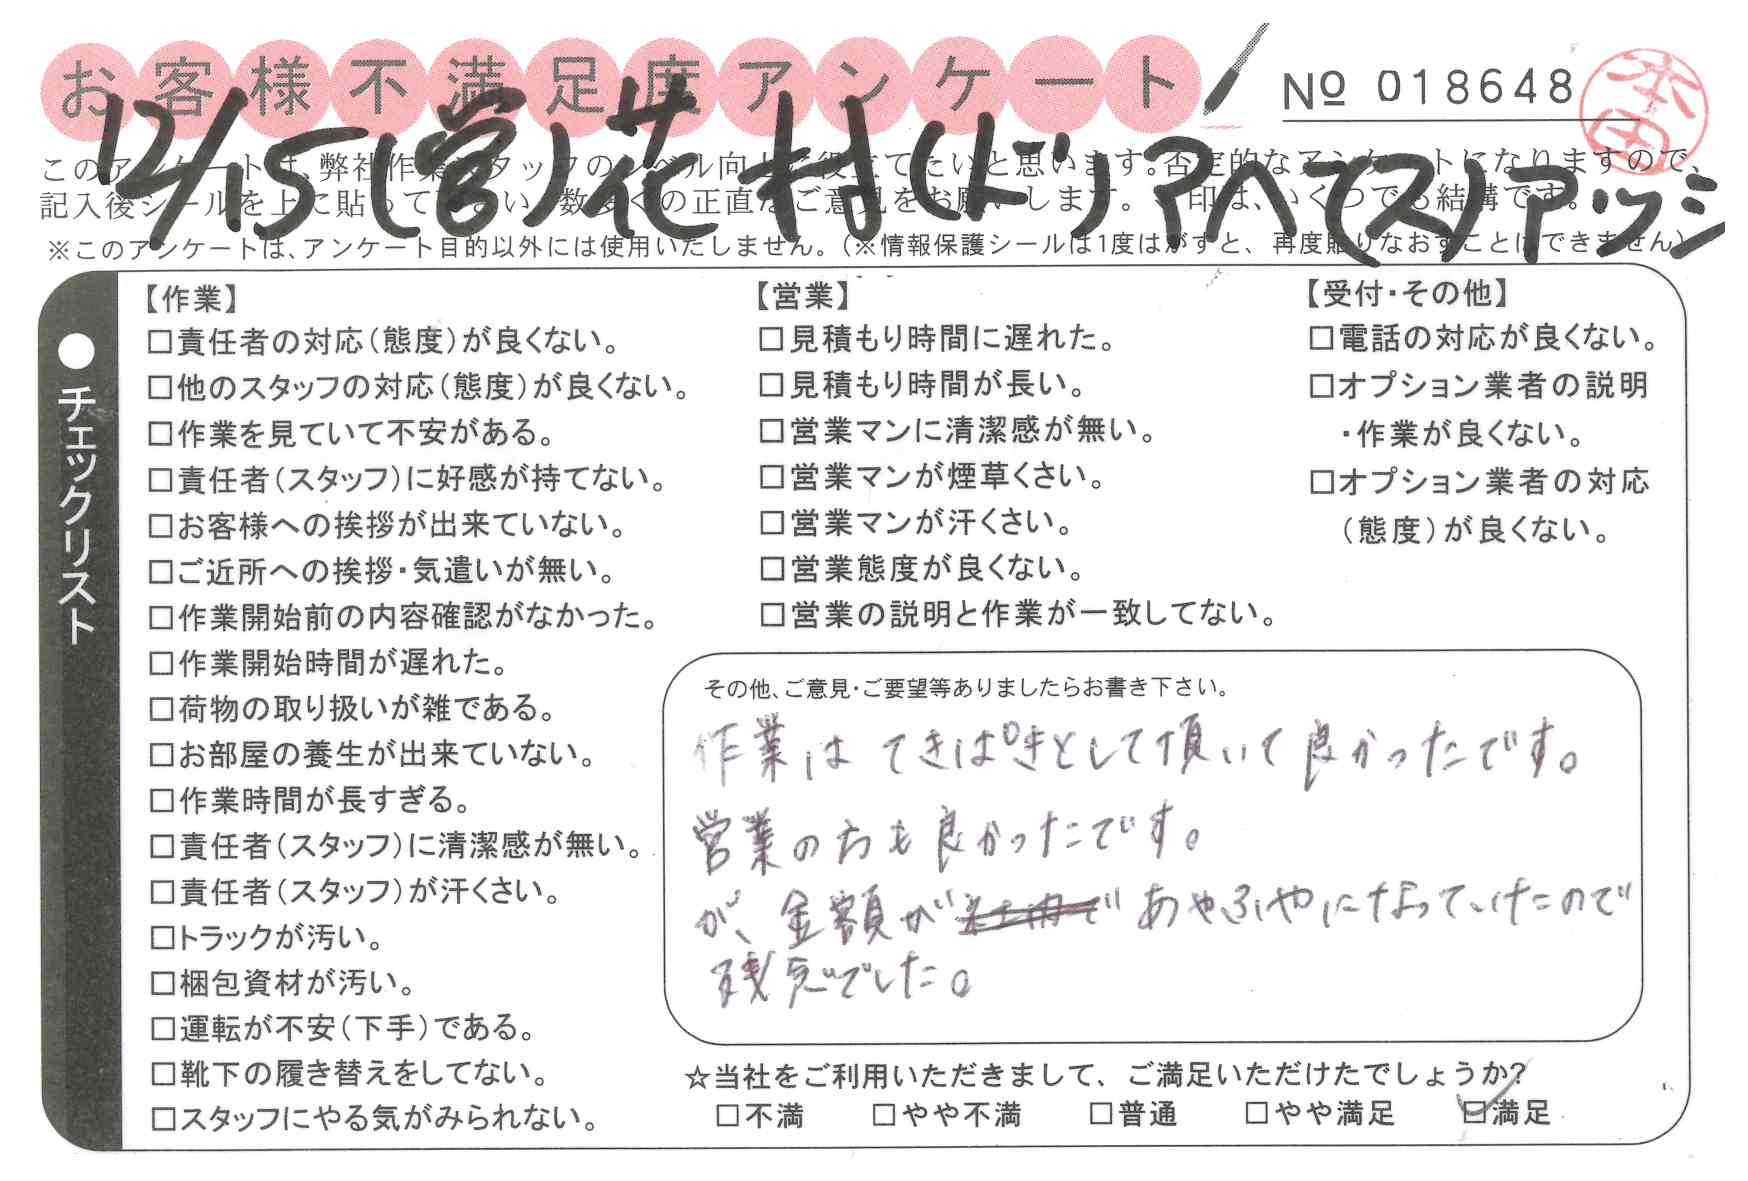 お客様不満足度アンケート
No 018648
本田
12/15(営)花村(ド)アベ(ス)アツシ
このアンケートは、弊社作業スタッフのレベル向上に役立てたいと思います。否定的なアンケートになりますので、
記入後シールを上に貼って下さい。数多くの正直なご意見をお願いします。 印は、いくつでも結構です。
※このアンケートは、アンケート目的以外には使用いたしません。(※情報保護シールは1度はがすと、再度貼りなおすことはできません)
●チェックリスト
【作業】
□責任者の対応(態度)が良くない。
□他のスタッフの対応(態度)が良くない。
□作業を見ていて不安がある。
□責任者(スタッフ)に好感が持てない。
□お客様への挨拶が出来ていない。
□ご近所への挨拶・気遣いが無い。
□作業開始前の内容確認がなかった。
□作業開始時間が遅れた。
□荷物の取り扱いが雑である。
□お部屋の養生が出来ていない。
□作業時間が長すぎる。
□責任者(スタッフ)に清潔感が無い。
□責任者(スタッフ)が汗くさい。
□トラックが汚い。
□梱包資材が汚い。
□運転が不安(下手)である。
□靴下の履き替えをしてない。
□スタッフにやる気がみられない。
【営業】
□見積もり時間に遅れた。
□見積もり時間が長い。
□営業マンに清潔感が無い。
□営業マンが煙草くさい。
□営業マンが汗くさい。
□営業態度が良くない。
□営業の説明と作業が一致してない。
【受付・その他】
□電話の対応が良くない。
□オプション業者の説明
・作業が良くない。
□オプション業者の対応
(態度)が良くない。
その他、ご意見・ご要望等ありましたらお書き下さい。
作業は てきぱきとして頂いて良かったです。
営業の方も良かったです。
が、金額が あやふやになっていたので
残念でした。
☆当社をご利用いただきまして、ご満足いただけたでしょうか?
□不満 □やや不満 □普通 □やや満足 ☑満足